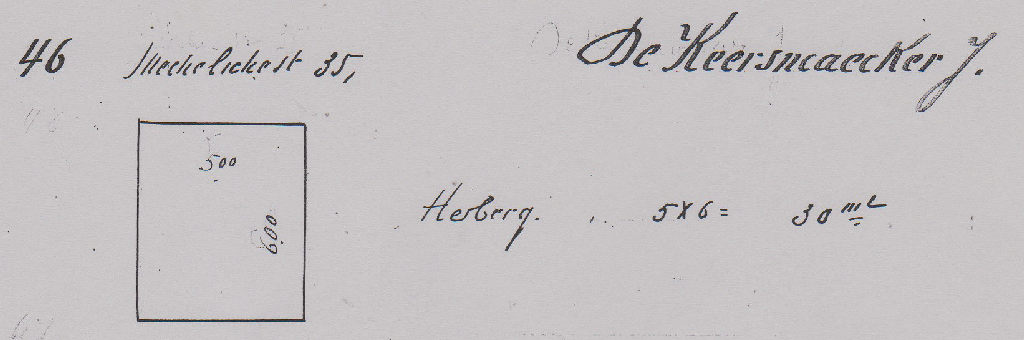 46 Mechelschest 35, De Keersmaecker J.
5,00
6,00
Herberg. 5 X 6 = 30 m²